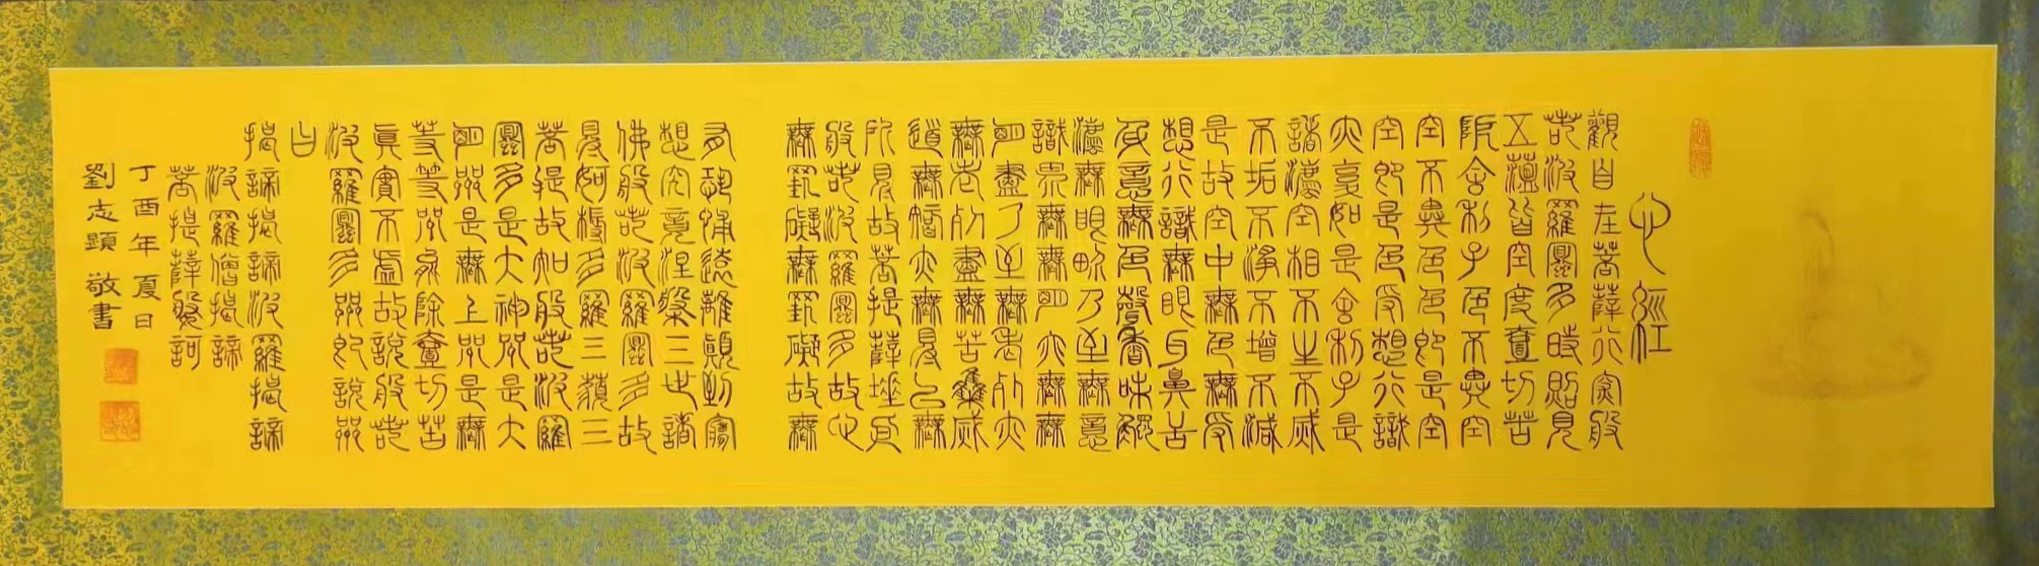 心經
觀自在菩薩行深般
若波羅蜜多時照見
五蘊皆空度壹切苦
厄舍利子色不異空
空不異色色即是空
空即是色受想行識
亦復如是舍利子是
諸法空相不生不滅
不垢不淨不增不減
是故空中無色無受
想行識無眼耳鼻舌
身意無色聲香味觸
法無眼界乃至無意
識界無無明亦無無
明盡乃至無老死亦
無老死盡無苦集滅
道無智亦無得以無
所得故菩提薩埵依
般若波羅蜜多故心
無罣礙無罣礙故無
有恐怖遠離顛倒夢
想究竟涅槃三世諸
佛般若波羅蜜多故
得阿耨多羅三藐三
菩提故知般若波羅
蜜多是大神咒是大
明咒是無上咒是無
等等咒能除壹切苦
真實不虛故說般若
波羅蜜多咒即說咒
曰
揭諦揭諦波羅揭諦
波羅僧揭諦
菩提薩婆訶
丁酉年夏日
劉志顕 敬書